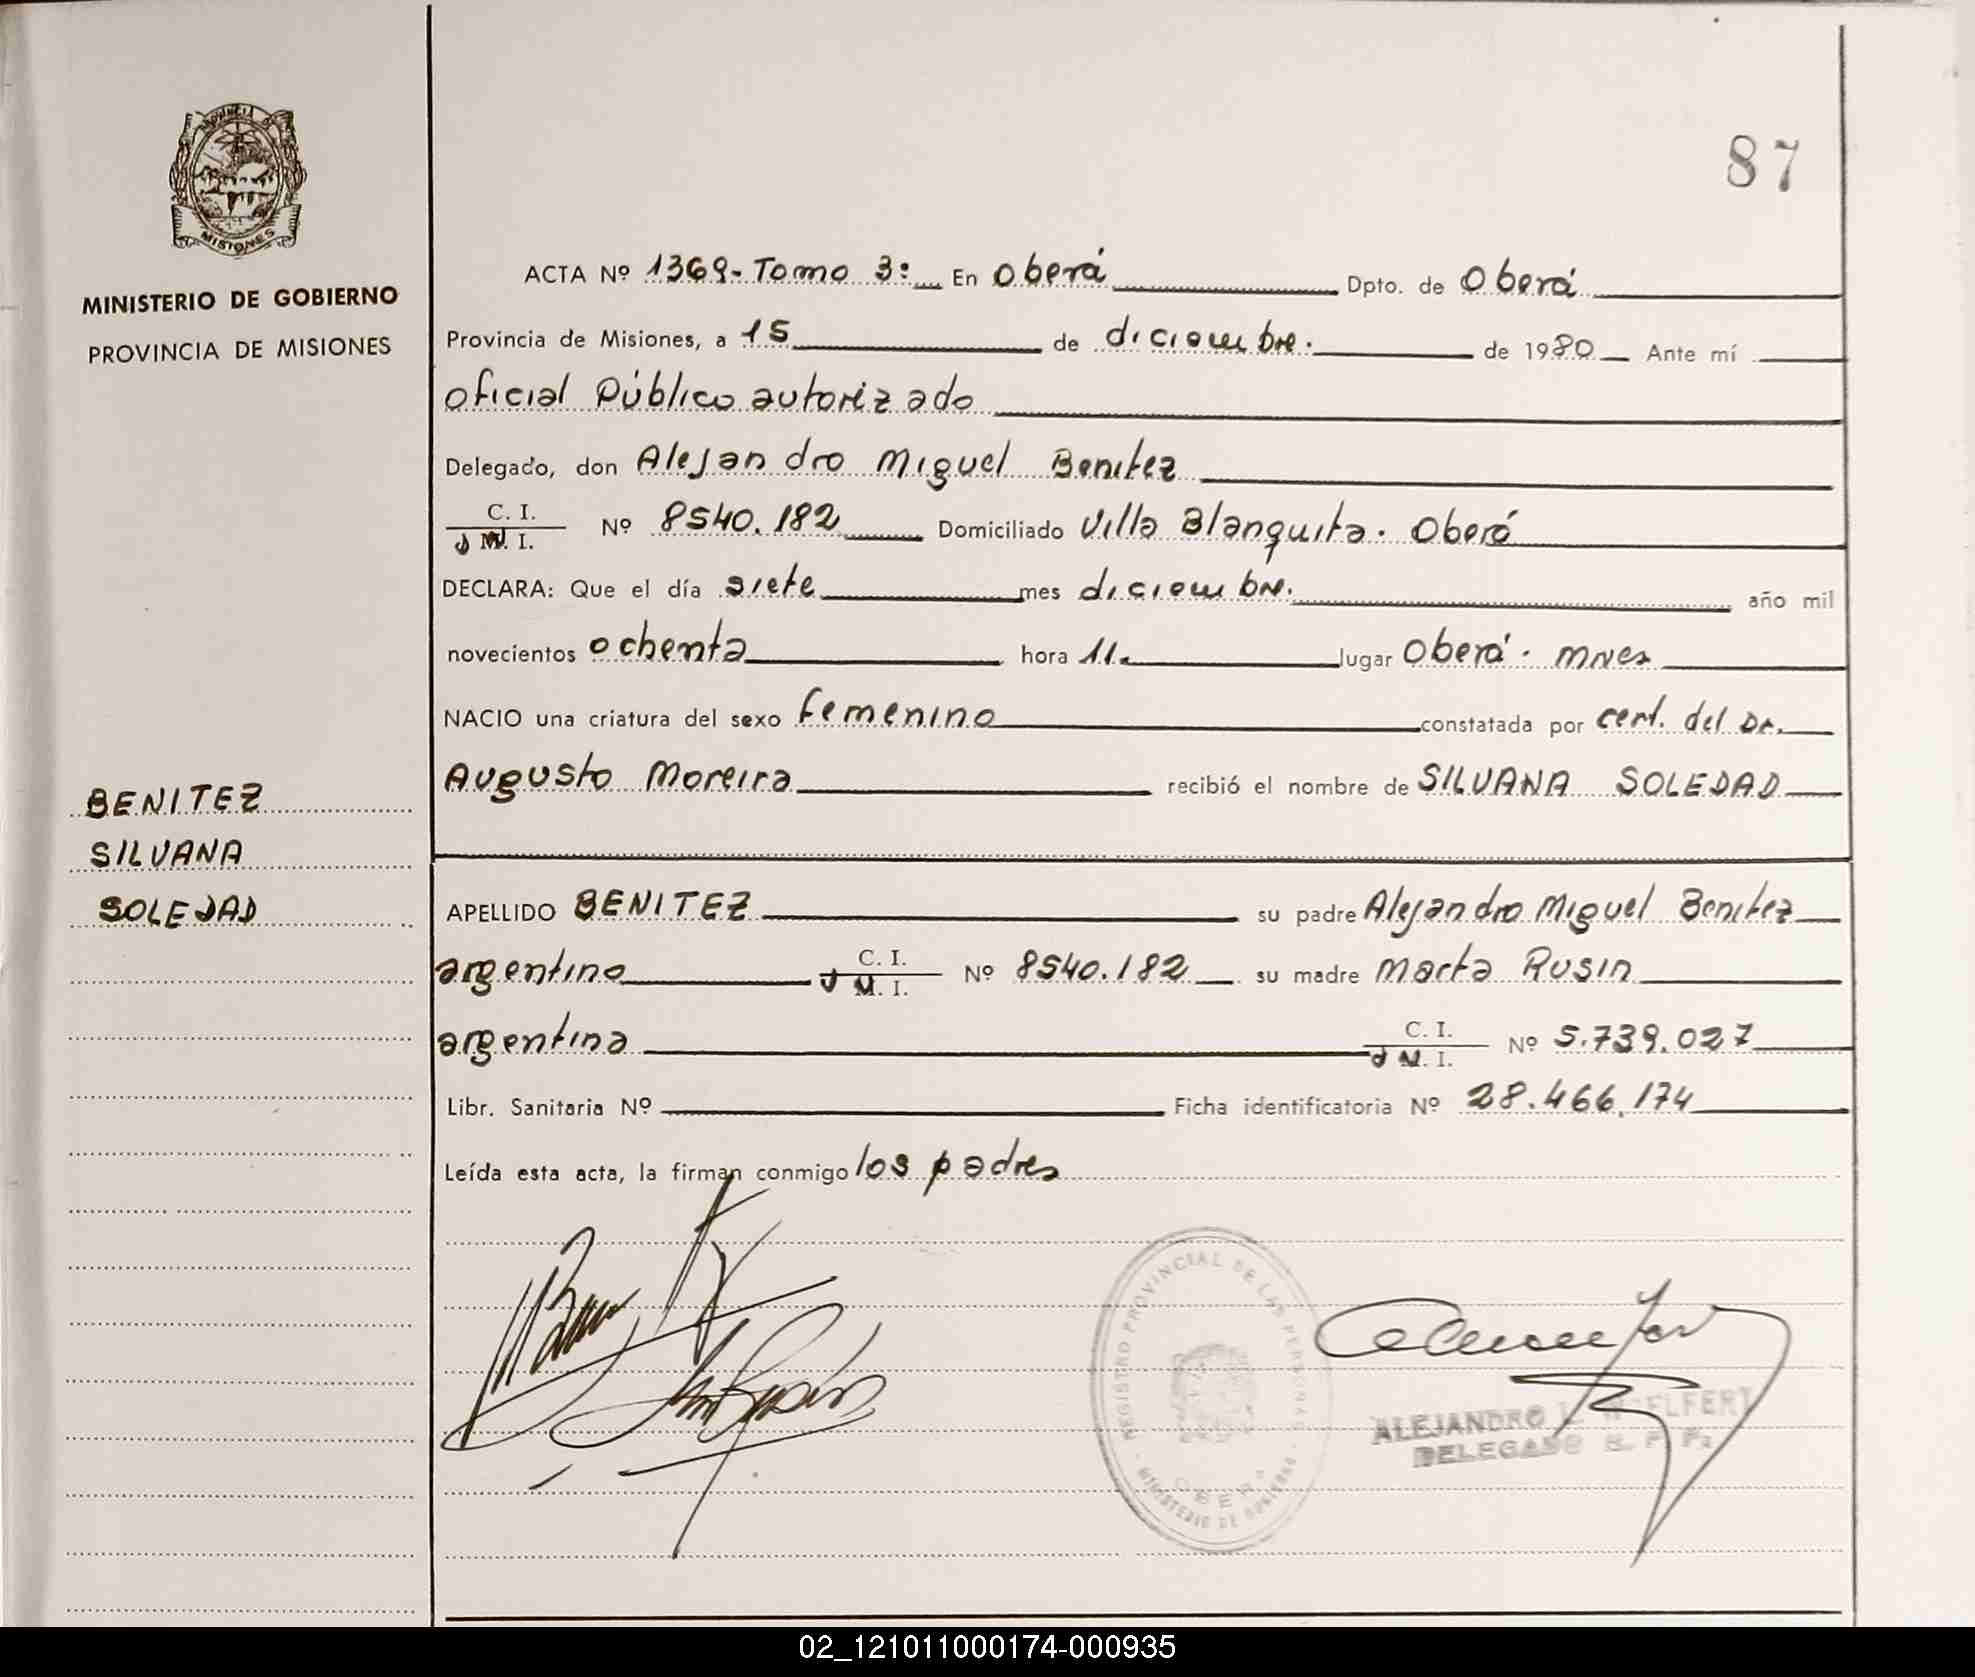 87
PROVINCIA DE
MISIONES
MINISTERIO DE GOBIERNO
PROVINCIA DE MISIONES
BENITEZ
SILVANA
SOLEDAD
ACTA Nº 1369-Tomo 3: En Oberá Dpto. de Oberá
Provincia de Misiones, a 15 de diciembre. de 1980 Ante mí
oficial Público autorizado
Delegado, don Alejandro Miguel Benitez
C. I.
M. I. Nº 8540.182 Domiciliado Villa Blanquita. Oberá
DECLARA: Que el día siete mes diciembre. año mil
novecientos ochenta hora 11. lugar Oberá. Mnes
NACIO una criatura del sexo femenino constatada por cert. del Dr.
Augusto Moreira recibió el nombre de SILVANA SOLEDAD
APELLIDO BENITEZ su padre Alejandro Miguel Benitez
argentino C. I. M. I. Nº 8540.182 su madre Marta Rusin
argentina C. I. M. I. Nº 5.739.027
Libr. Sanitaria Nº Ficha identificatoria Nº 28.466.174
Leída esta acta, la firman conmigo los padres
REGISTRO PROVINCIAL DE LAS PERSONAS
OBERA
MINISTERIO DE GOBIERNO
ALEJANDRO L. WELFERT
DELEGADO R. P. P.
02_121011000174-000935